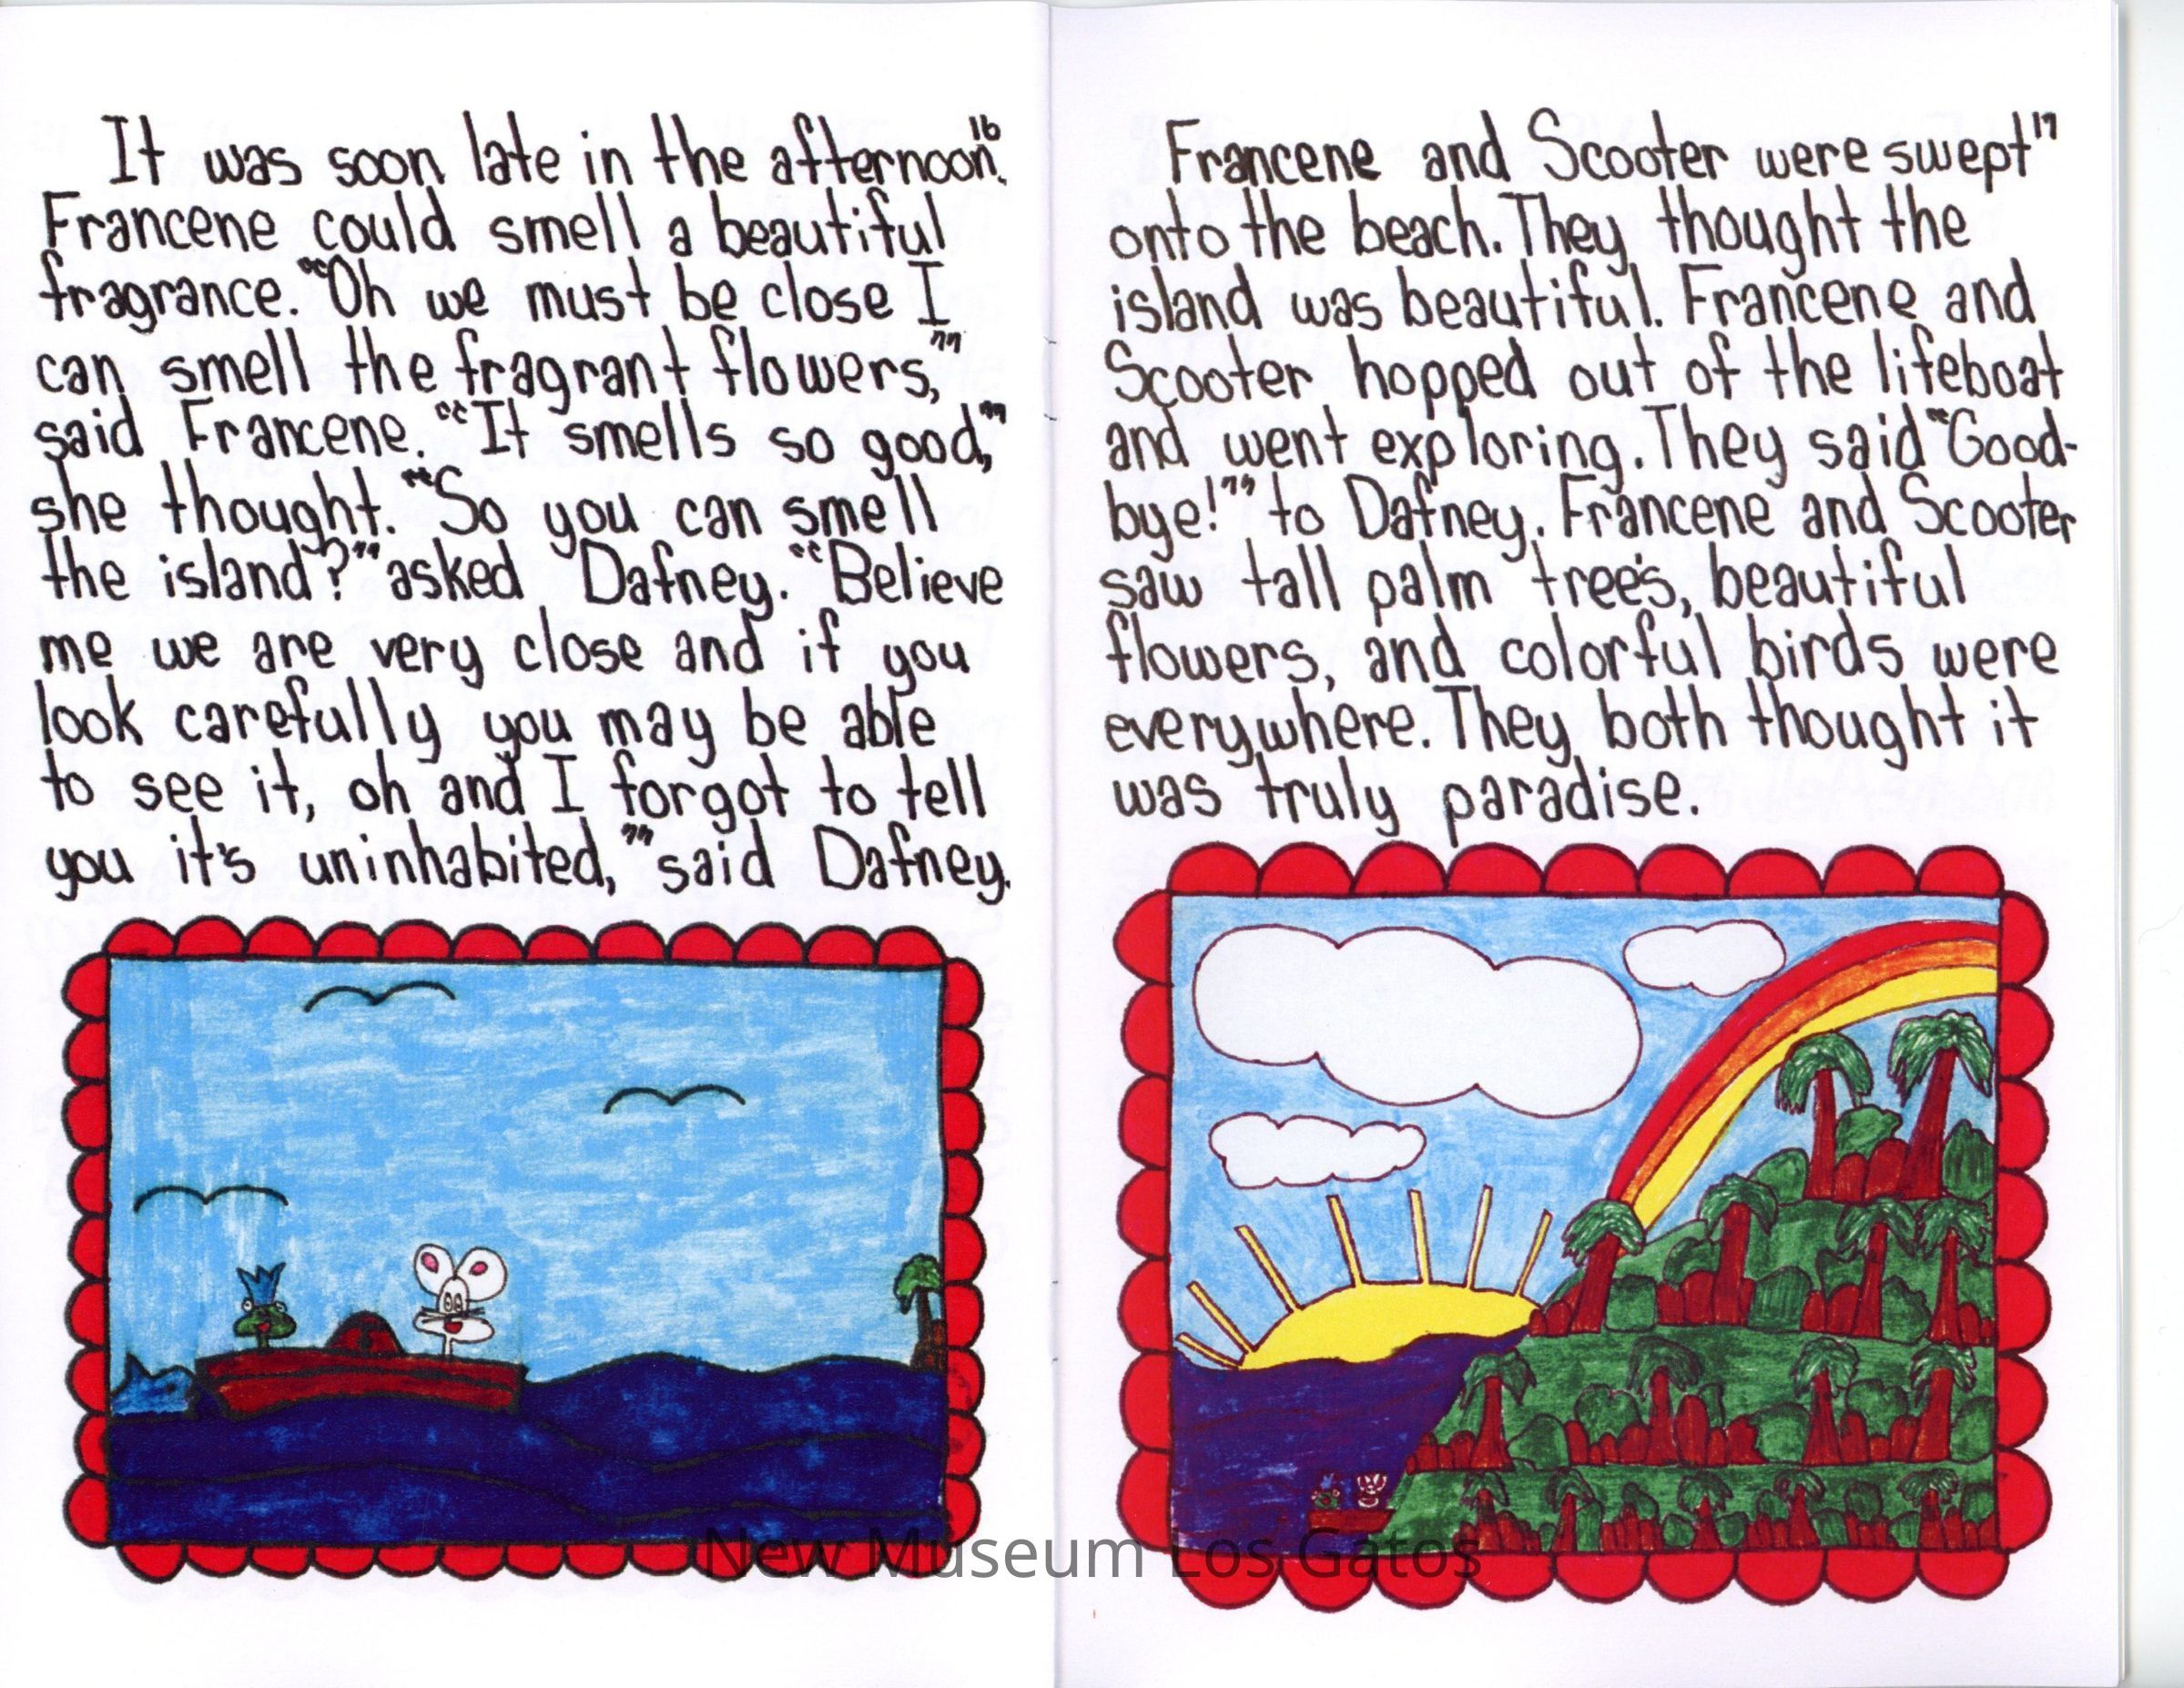 16
It was soon late in the afternoon.
Francene could smell a beautiful
fragrance. "Oh we must be close I
can smell the fragrant flowers,"
said Francene. "It smells so good,"
she thought. "So you can smell
the island?" asked Dafney. "Believe
me we are very close and if you
look carefully you may be able
to see it, oh and I forgot to tell
you it's uninhabited," said Dafney.
17
Francene and Scooter were swept
onto the beach. They thought the
island was beautiful. Francene and
Scooter hopped out of the lifeboat
and went exploring. They said "Good-
bye!" to Dafney. Francene and Scooter
saw tall palm trees, beautiful
flowers, and colorful birds were
everywhere. They both thought it
was truly paradise.
New Museum Los Gatos